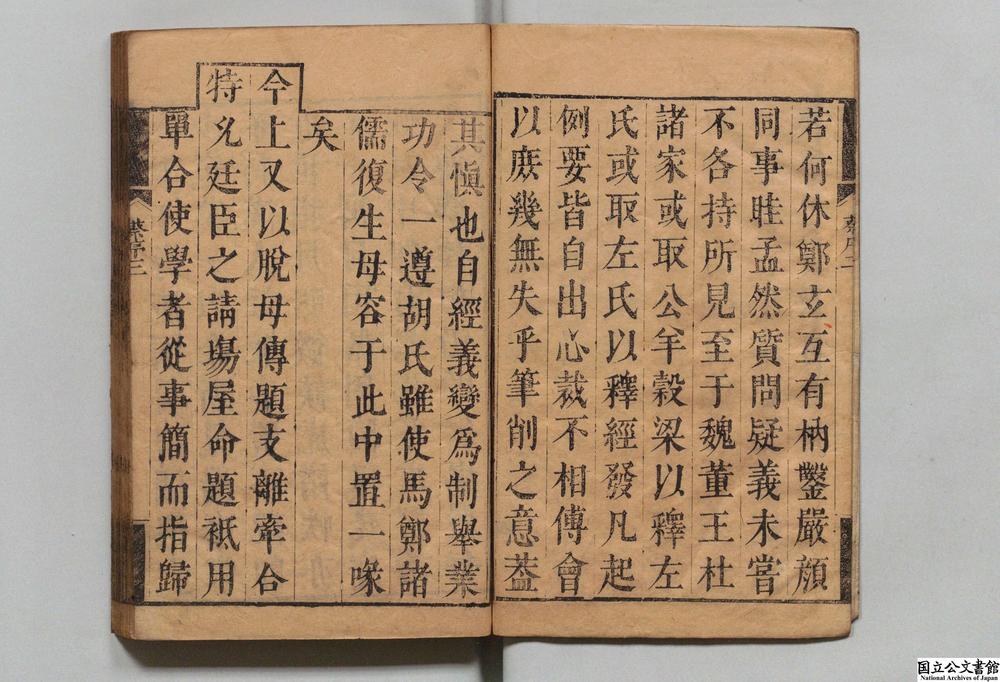 若何休鄭玄互有枘鑿嚴顔
同事眭孟然質問疑義未嘗
不各持所見至于魏董王杜
諸家或取公羊穀梁以釋左
氏或取左氏以釋經發凡起
例要皆自出心裁不相傅會
以庻幾無失乎筆削之意葢
蔡序二
其愼也自經義變爲制舉業
功令一遵胡氏雖使馬鄭諸
儒復生毋容于此中置一喙
矣
今上又以脫母傳題支離牽合
特允廷臣之請塲屋命題祗用
單合使學者從事簡而指歸
蔡序三
国立公文書館
National Archives of Japan